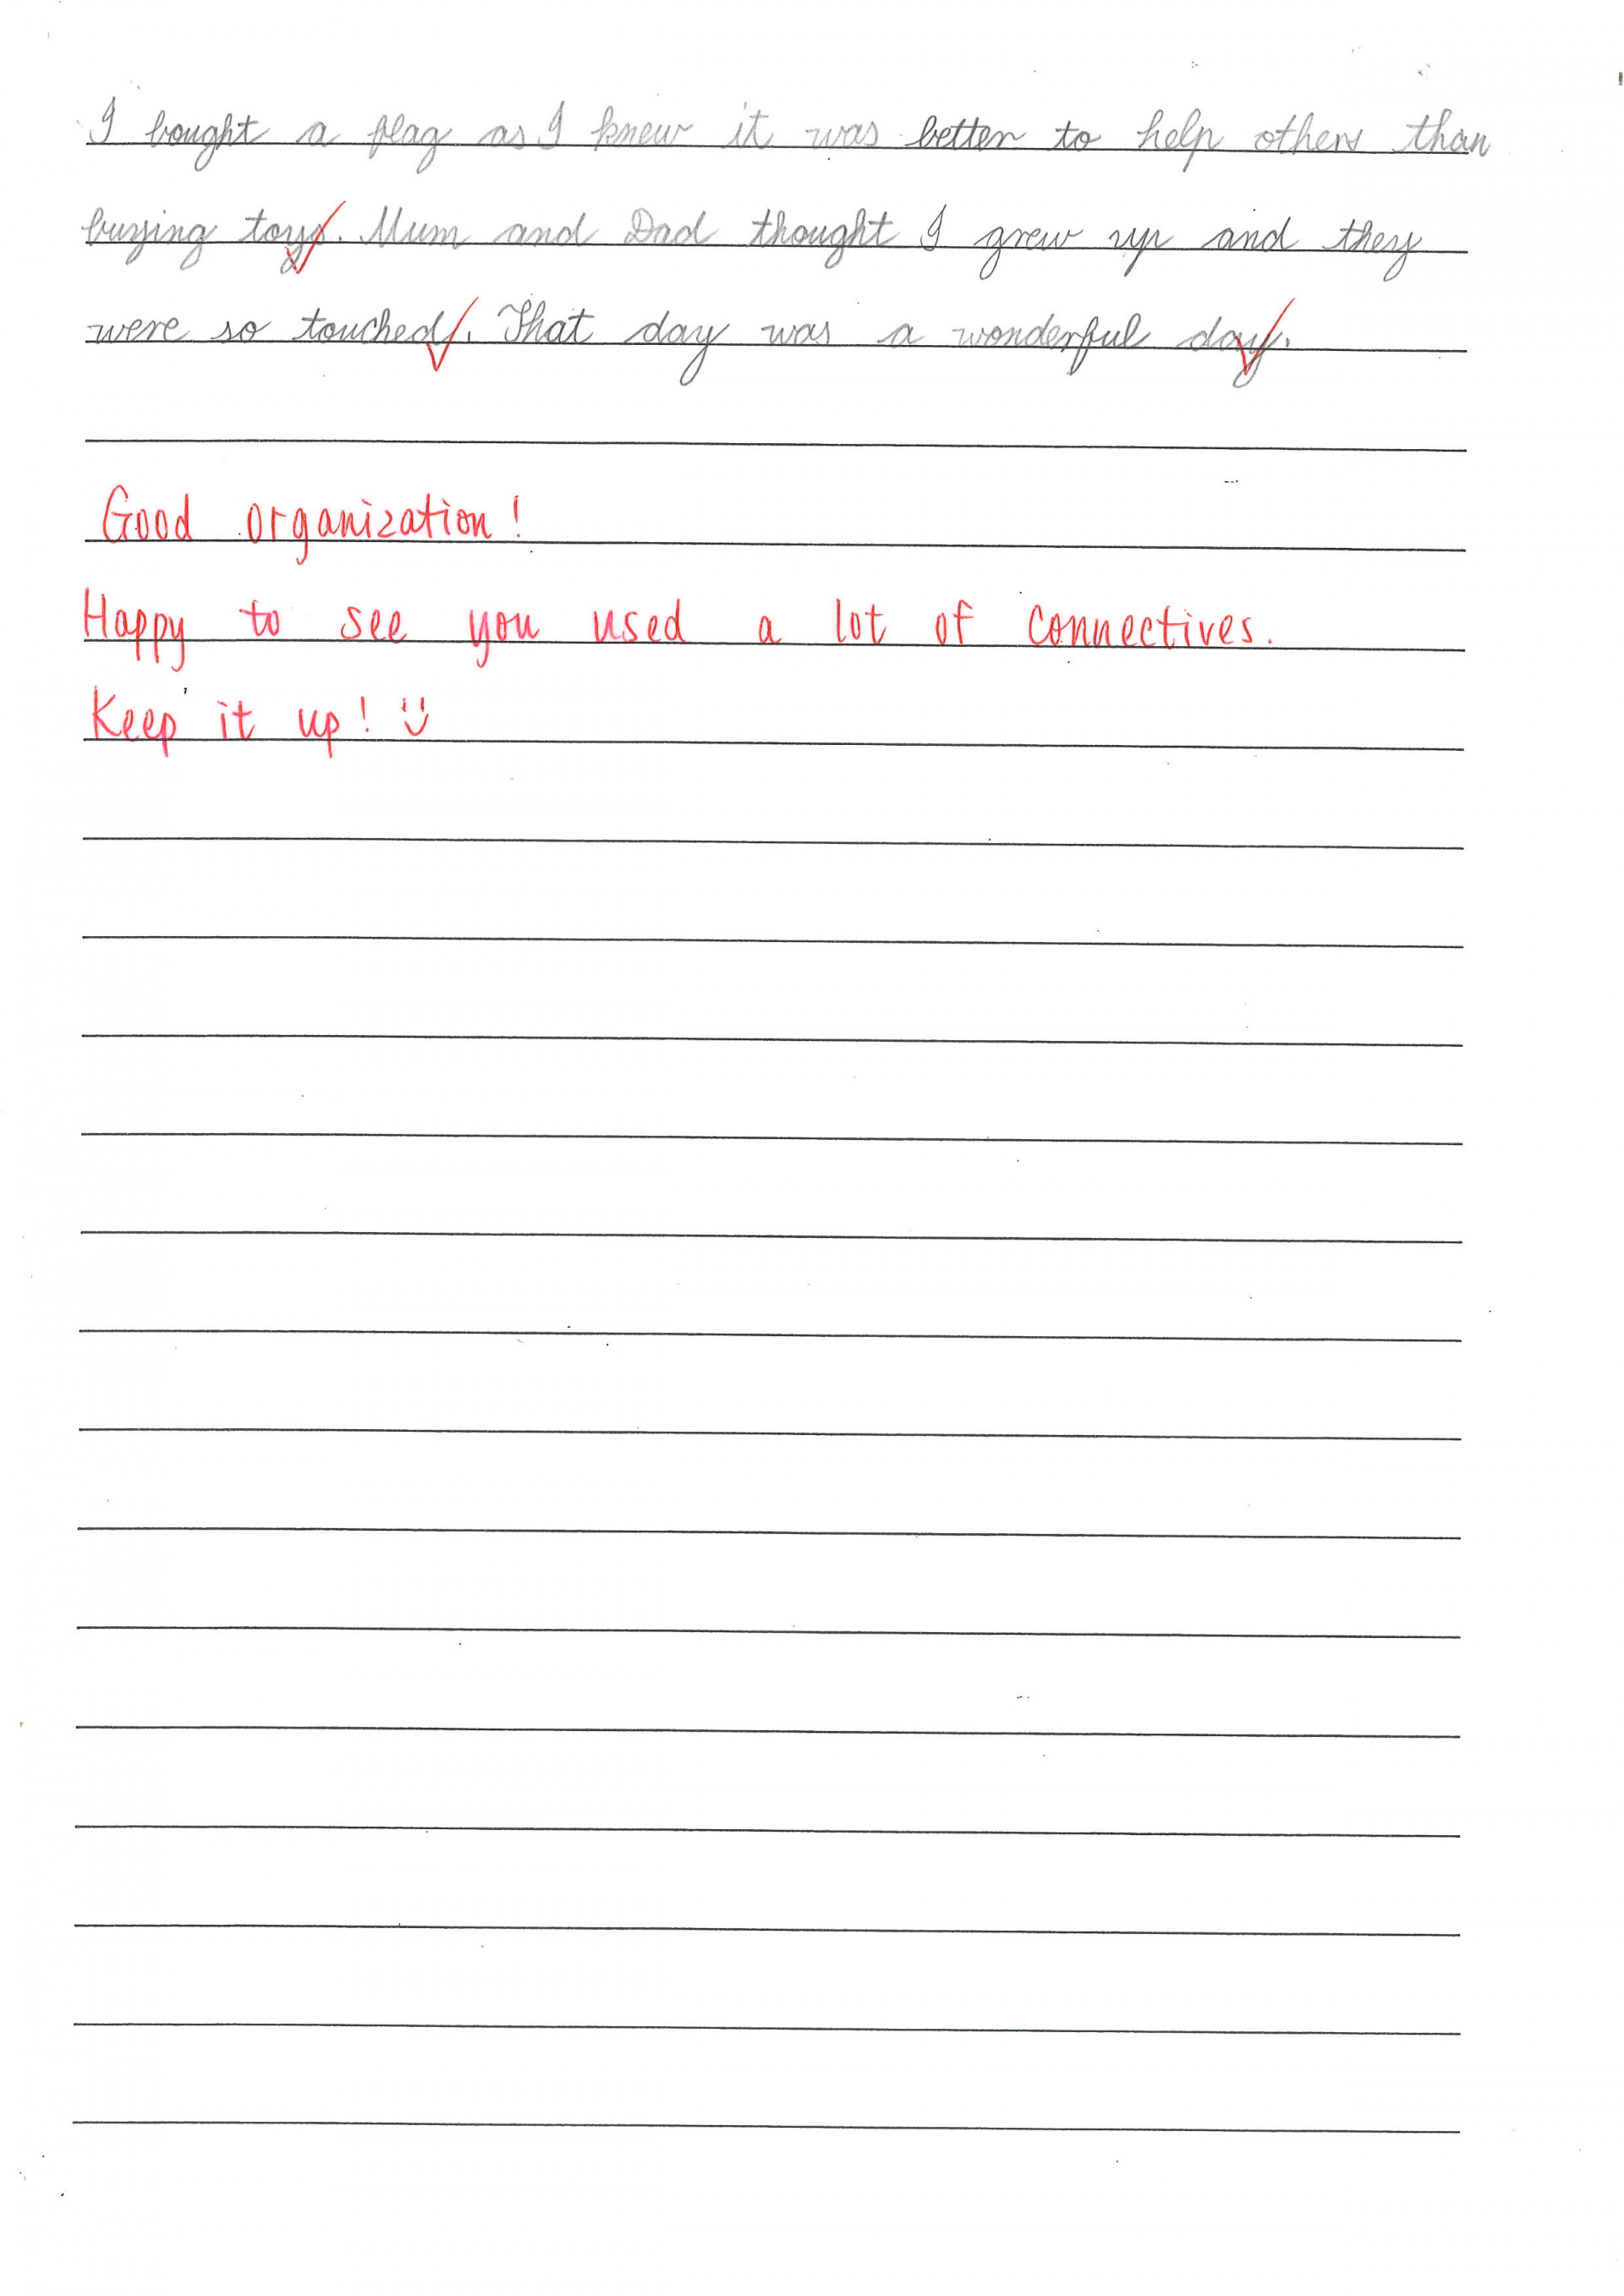 I bought a flag as I knew it was better to help others than
buying toys. Mum and Dad thought I grew up and they
were so touched. That day was a wonderful day.
Good organization!
Happy to see you used a lot of connectives.
Keep it up!